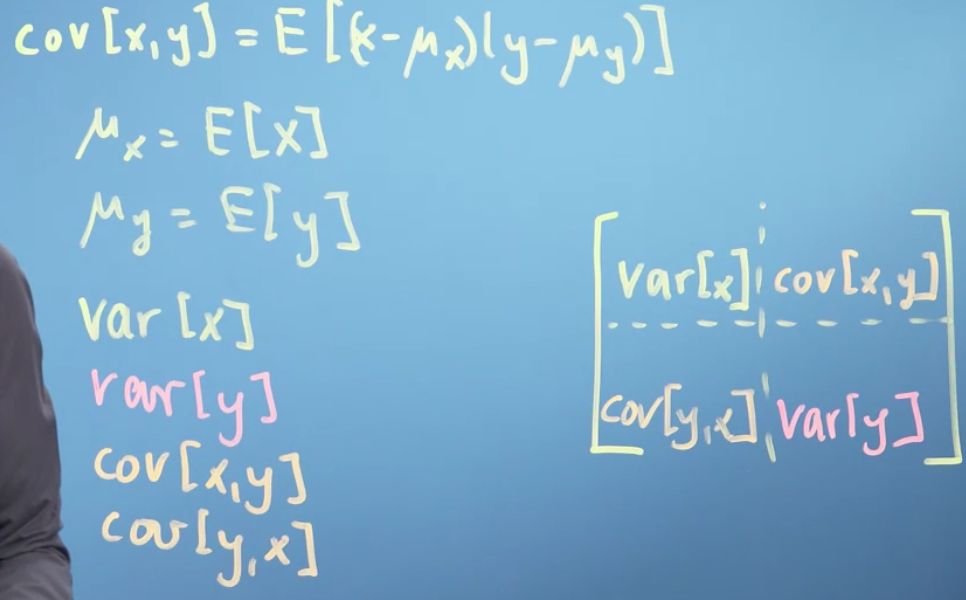 cov[x,y] = E[(x-μx)(y-μy)]
μx = E[x]
μy = E[y]
var[x]
var[y]
cov[x,y]
cov[y,x]
var[x] cov[x,y]
cov[y,x] var[y]